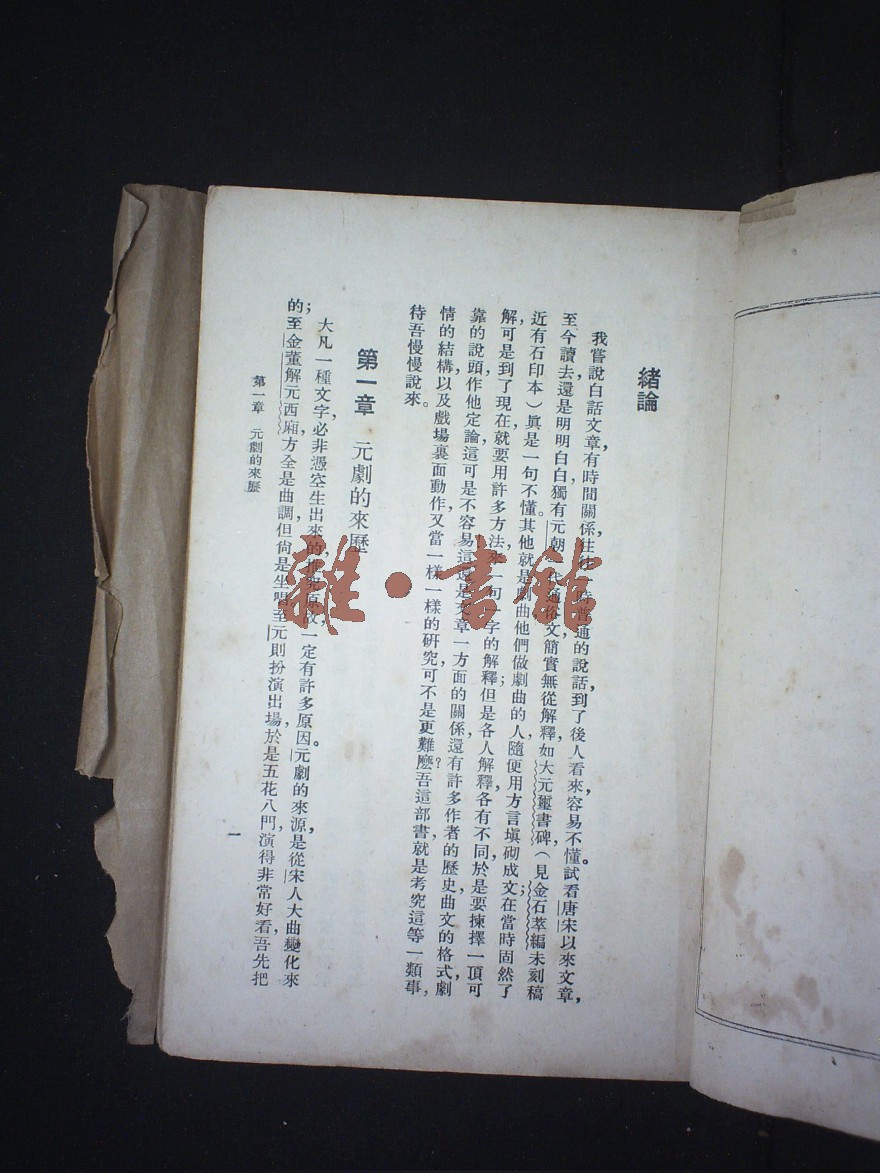 緒論
我嘗說白話文章有時間關係生在一時普通的說話，到了後人看來，容易不懂。試看唐宋以來文章，
至今讀去，還是明明白白，獨有元朝一代通俗文，簡實無從解釋，如大元璽書碑（見金石萃編未刻稿
近有石印本）眞是一句不懂。其他就是劇曲，他們做劇曲的人，隨便用方言塡砌成文；在當時固然了
解，可是到了現在，就要用許多方法來一句一字的解釋；但是各人解釋，各有不同，於是要揀擇一頂可
靠的說頭，作他定論，這可是不容易，這還是文章一方面的關係，還有許多作者的歷史，曲文的格式，劇
情的結構，以及戲場裏面動作，又當一樣一樣的硏究，可不是更難麽？吾這部書，就是考究這等一類事，
待吾慢慢說來。
第一章 元劇的來歷
大凡一種文字，必非憑空生出來的，推究原故，一定有許多原因。元劇的來源，是從宋人大曲變化來
的；至金董解元西廂，方全是曲調，但尙是坐唱，至元則扮演出場，於是五花八門，演得非常好看，吾先把
第一章 元劇的來歷
一
雜·書館